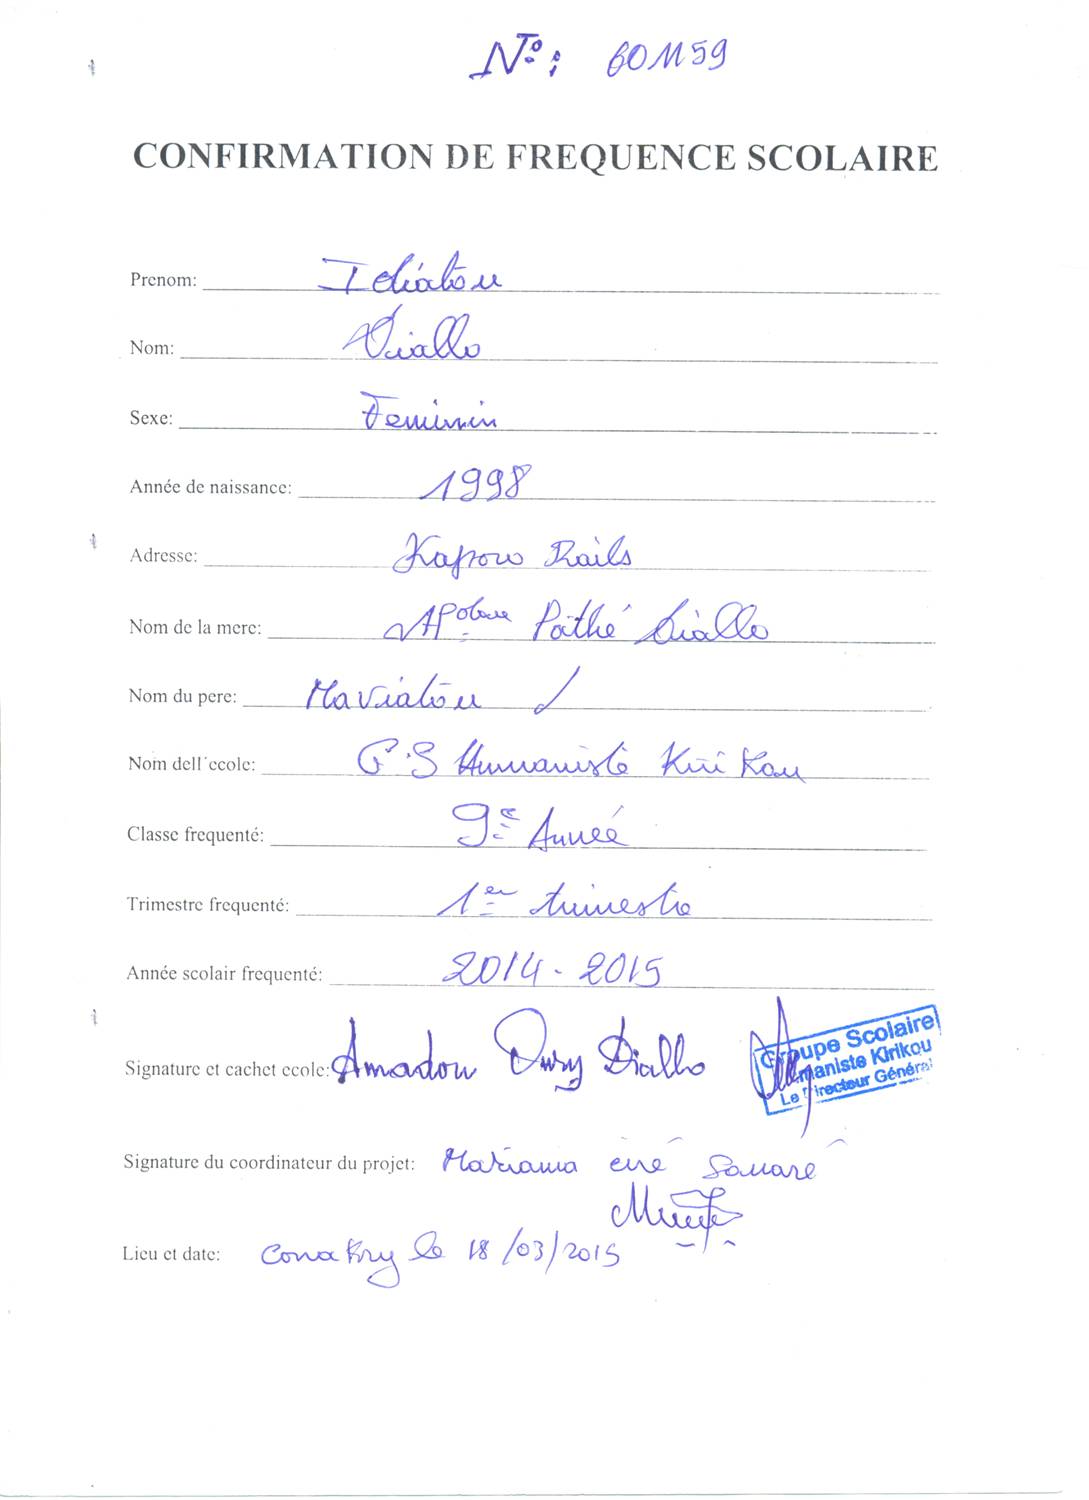 N°: 601159
CONFIRMATION DE FREQUENCE SCOLAIRE
Prenom: Idiatou
Nom: Diallo
Sexe: Feminin
Année de naissance: 1998
Adresse: Kaporo Rails
Nom de la mere: Pathé Diallo
Nom du pere: Mariatou
Nom dell´ecole: G.S Humaniste Kirikou
Classe frequenté: 9e Année
Trimestre frequenté: 1er trimestre
Année scolair frequenté: 2014 - 2015
Groupe Scolaire
Humaniste Kirikou
Le Directeur Général
Signature et cachet ecole: Amadou Oury Diallo
Signature du coordinateur du projet: Mariama ciré Souaré
Lieu et date: Conakry le 18/03/2015